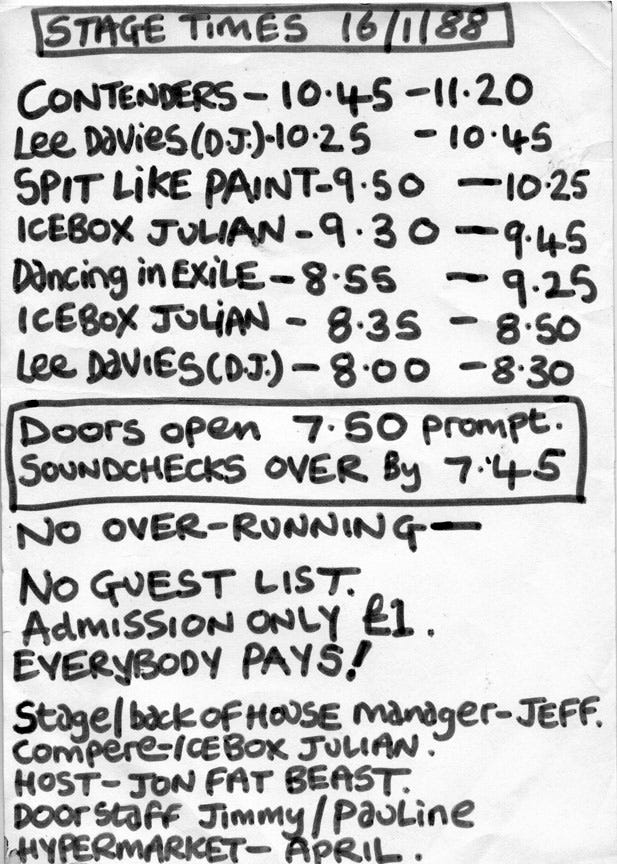 STAGE TiMES 16/1/88
CONTENDERS - 10.45 - 11.20
Lee Davies (D.J.) - 10.25 - 10.45
SPIT LiKE PAINT - 9.50 - 10.25
ICEBOX JULIAN - 9.30 - 9.45
Dancing in EXiLE - 8.55 - 9.25
ICEBOX JULiAN - 8.35 - 8.50
Lee DAViES (D.J.) - 8.00 - 8.30
Doors open 7.50 prompt.
SOUNDCHECKS OVER By 7.45
NO OVER-RUNNING —
NO GUEST LIST.
Admission ONLY £1.
EVERYBODY PAYS!
Stage/back of HOUSE manager - JEFF.
Compere - ICEBOX JULIAN.
HOST - JON FAT BEAST.
DOOR Staff Jimmy/Pauline
HYPERMARKET - APRIL.